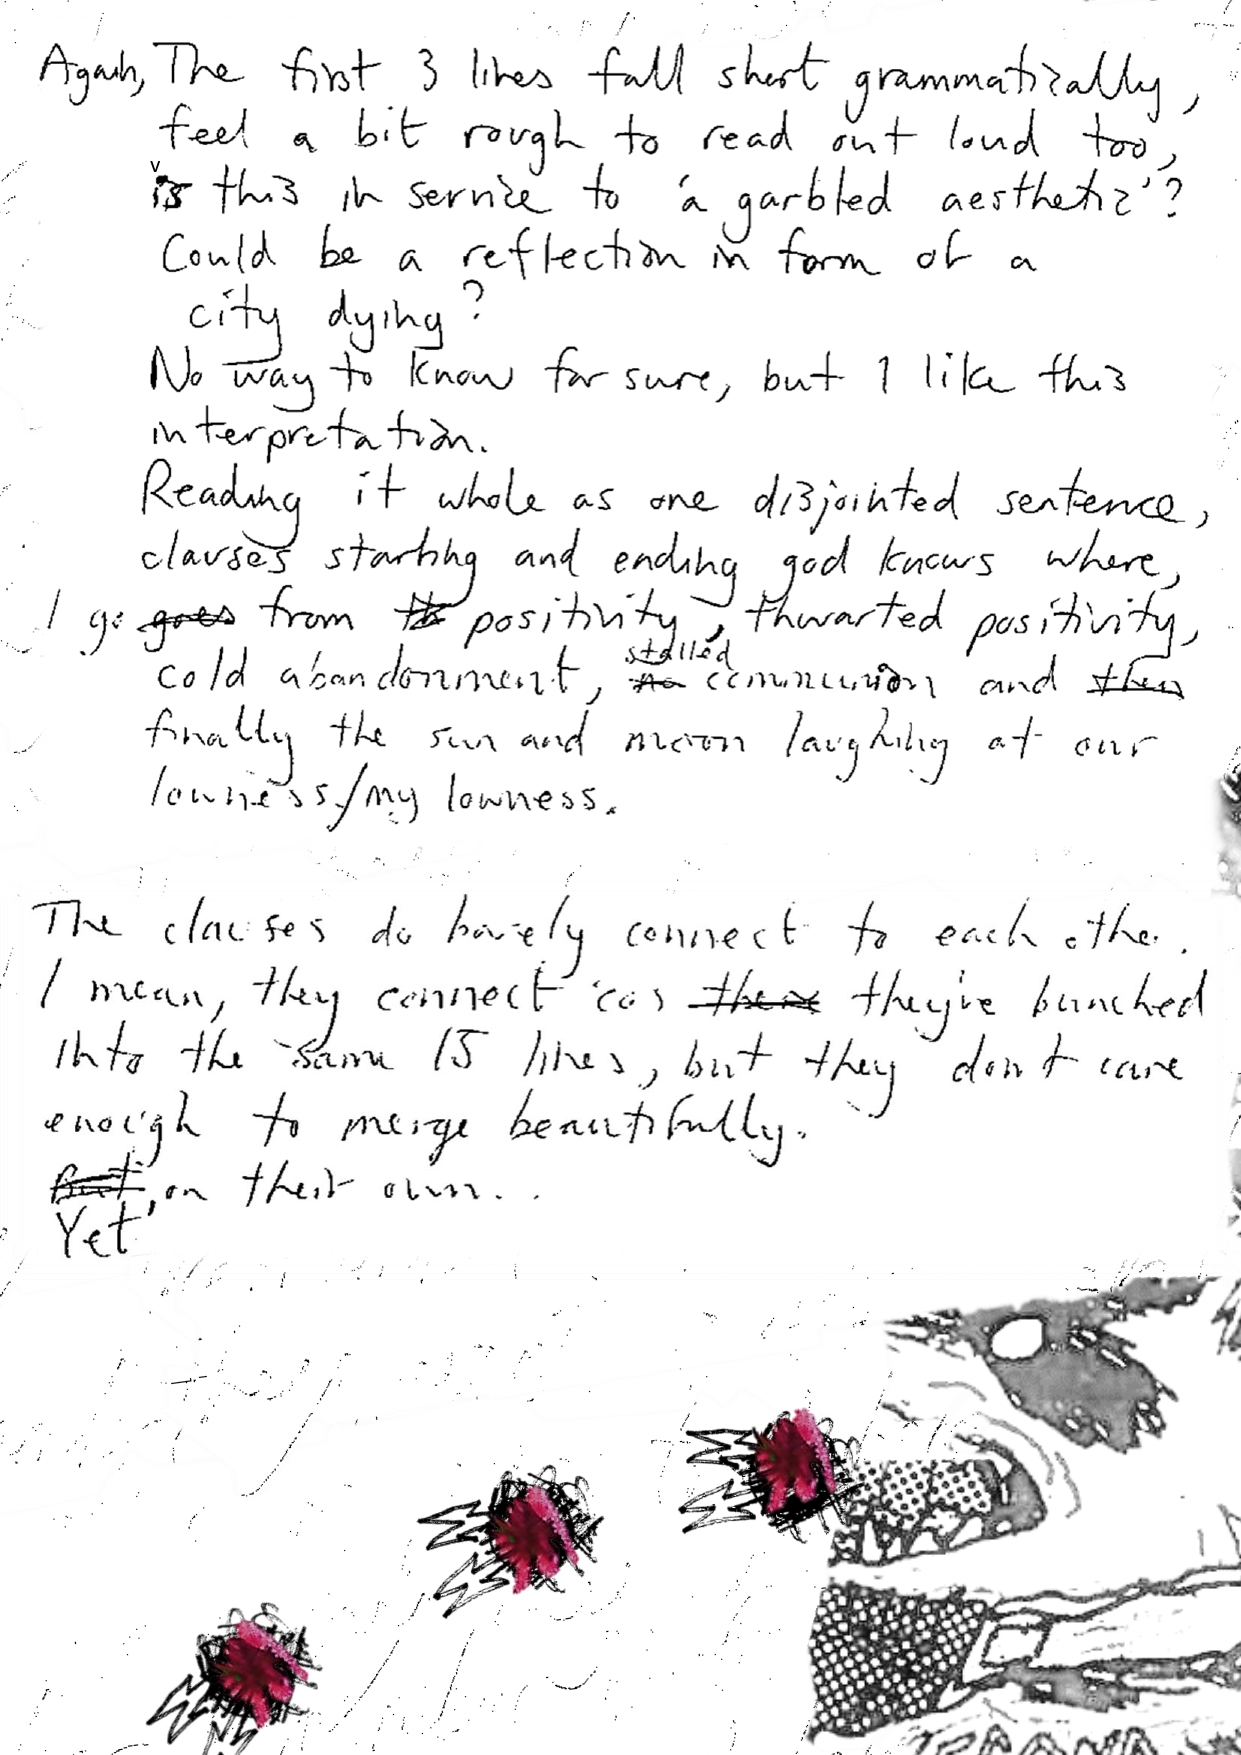 Again, The first 3 lines fall short grammatically,
feel a bit rough to read out loud too,
is this in service to 'a garbled aesthetic'?
Could be a reflection in form of a
city dying?
No way to know for sure, but I like this
interpretation.
Reading it whole as one disjointed sentence,
clauses starting and ending god knows where,
I go goes from positivity, thwarted positivity,
cold abandonment, stalled communion and then
finally the sun and moon laughing at our
lowness/my lowness.
The clauses do barely connect to each other.
I mean, they connect 'cos they're bunched
into the same 15 lines, but they don't care
enough to merge beautifully.
But, on their own...
Yet